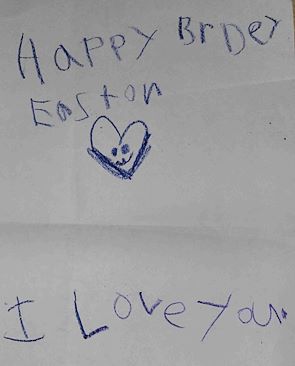 Happy BrDey
Easton
I Love You